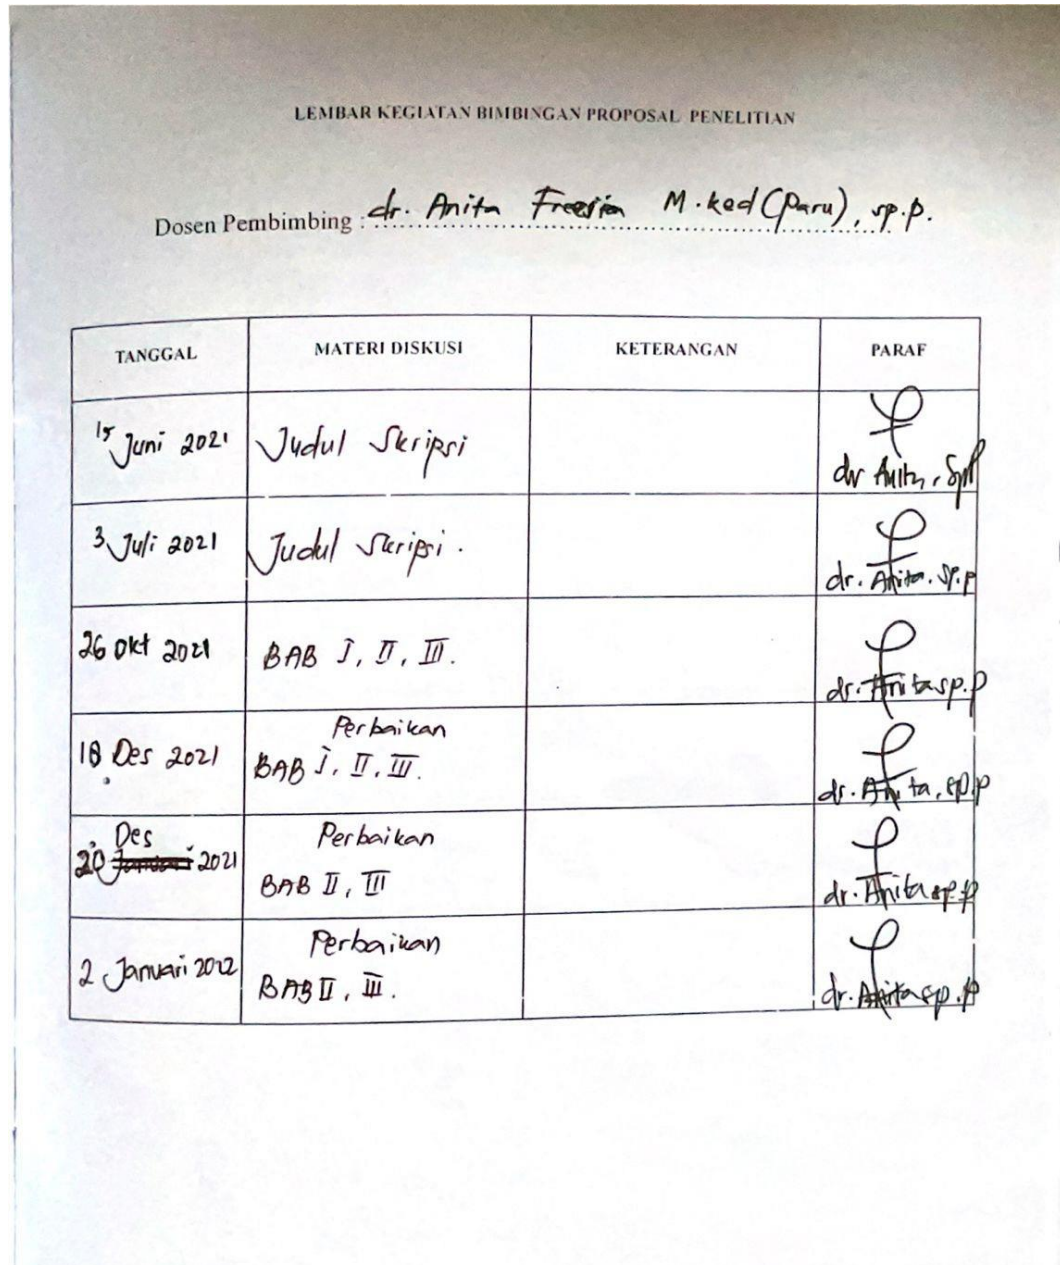 LEMBAR KEGIATAN BIMBINGAN PROPOSAL PENELITIAN
Dosen Pembimbing : dr. Anita Freesia M.ked (Paru), sp.p.
TANGGAL MATERI DISKUSI KETERANGAN PARAF
15 Juni 2021 Judul Skripsi
dr Anita, SpP
3 Juli 2021 Judul Skripsi.
dr. Anita. SP.P
26 Okt 2021 BAB I, II, III.
dr. Anita sp.p
Perbaikan
18 Des 2021 BAB I, II, III.
dr. Anita, sp.p
Des Perbaikan
20 2021 BAB II, III
dr. Anita sp.p
Perbaikan
2 Januari 2022 BAB II, III.
dr. Anita sp.p